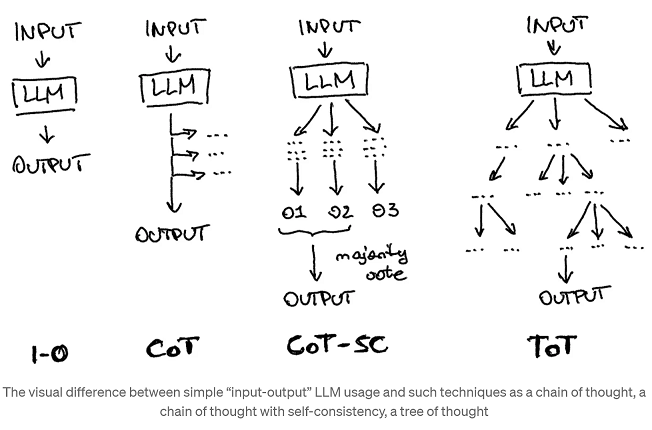 INPUT
LLM
OUTPUT
I-O
INPUT
LLM
...
...
...
OUTPUT
CoT
INPUT
LLM
O1 O2 O3
majority
vote
OUTPUT
CoT-SC
INPUT
LLM
... ... ...
... ... ... ...
... ... ... ... ...
OUTPUT
ToT
The visual difference between simple “input-output” LLM usage and such techniques as a chain of thought, a
chain of thought with self-consistency, a tree of thought